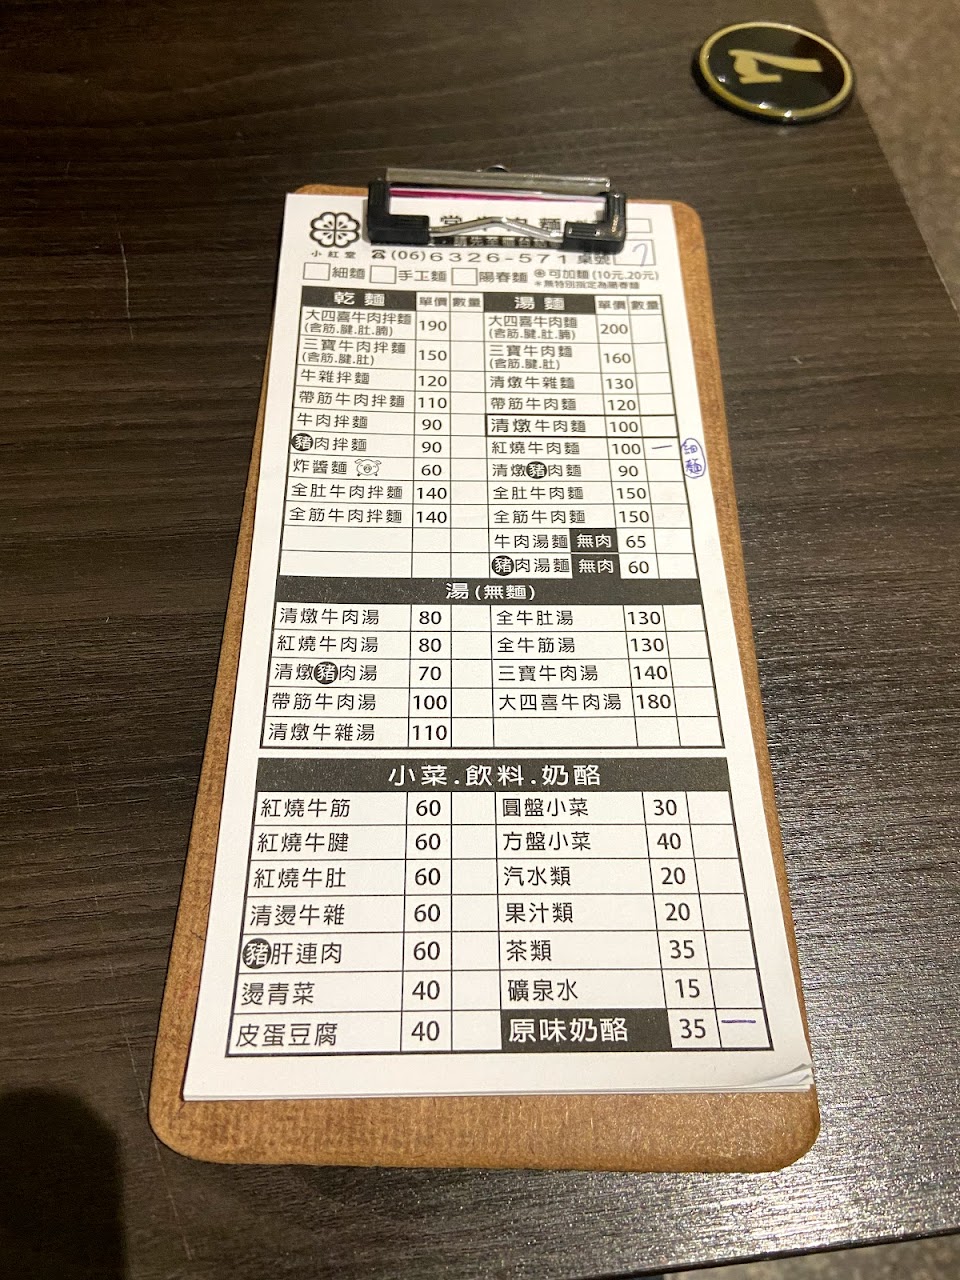 7
小紅堂
☎(06)6326-571 桌號 7
細麵 手工麵 陽春麵 ⊕可加麵(10元.20元)
＊無特別指定為陽春麵
乾麵 單價 數量 湯麵 單價 數量
大四喜牛肉拌麵 (含筋.腱.肚.腩) 190 大四喜牛肉麵 (含筋.腱.肚.腩) 200
三寶牛肉拌麵 (含筋.腱.肚) 150 三寶牛肉麵 (含筋.腱.肚) 160
牛雜拌麵 120 清燉牛雜麵 130
帶筋牛肉拌麵 110 帶筋牛肉麵 120
牛肉拌麵 90 清燉牛肉麵 100
豬肉拌麵 90 紅燒牛肉麵 100 一 細麵
炸醬麵 60 清燉豬肉麵 90
全肚牛肉拌麵 140 全肚牛肉麵 150
全筋牛肉拌麵 140 全筋牛肉麵 150
牛肉湯麵 無肉 65
豬肉湯麵 無肉 60
湯(無麵)
清燉牛肉湯 80 全牛肚湯 130
紅燒牛肉湯 80 全牛筋湯 130
清燉豬肉湯 70 三寶牛肉湯 140
帶筋牛肉湯 100 大四喜牛肉湯 180
清燉牛雜湯 110
小菜.飲料.奶酪
紅燒牛筋 60 圓盤小菜 30
紅燒牛腱 60 方盤小菜 40
紅燒牛肚 60 汽水類 20
清燙牛雜 60 果汁類 20
豬肝連肉 60 茶類 35
燙青菜 40 礦泉水 15
皮蛋豆腐 40 原味奶酪 35 一